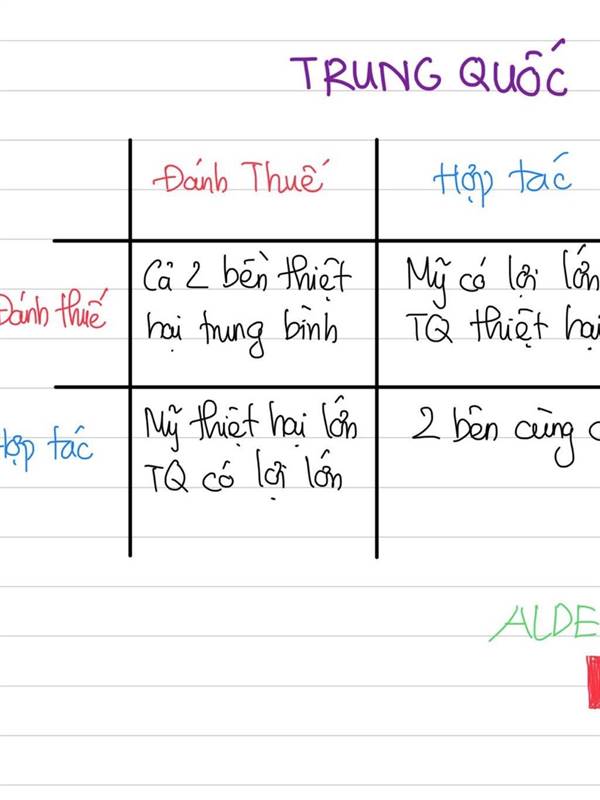 TRUNG QUỐC
Đánh Thuế
Hợp tác
Đánh thuế
Cả 2 bên thiệt
hại trung bình
Mỹ có lợi lớn
TQ thiệt hại
Hợp tác
Mỹ thiệt hại lớn
TQ có lợi lớn
2 bên cùng
ALDE